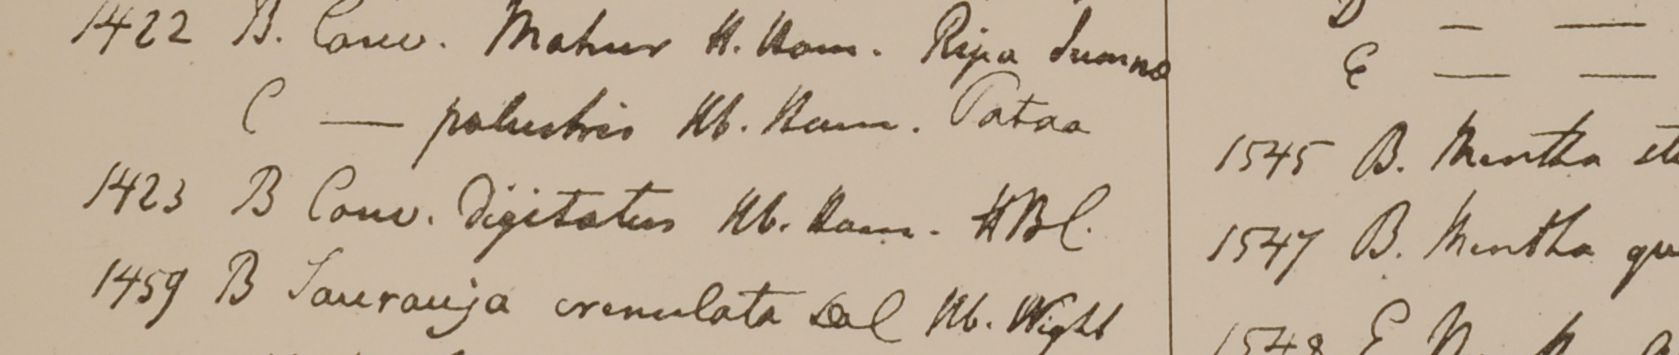 1422 B. Conv. Mahur H. Ham. Ripa Jumnæ
C — palustris Hb. Ham. Pataa
1423 B Conv. Digitatus Hb. Ham. HBC.
1459 B Saurauja crenulata Hb. Wight
D — —
E — —
1545 B. Mentha
1547 B. Mentha
1548 E